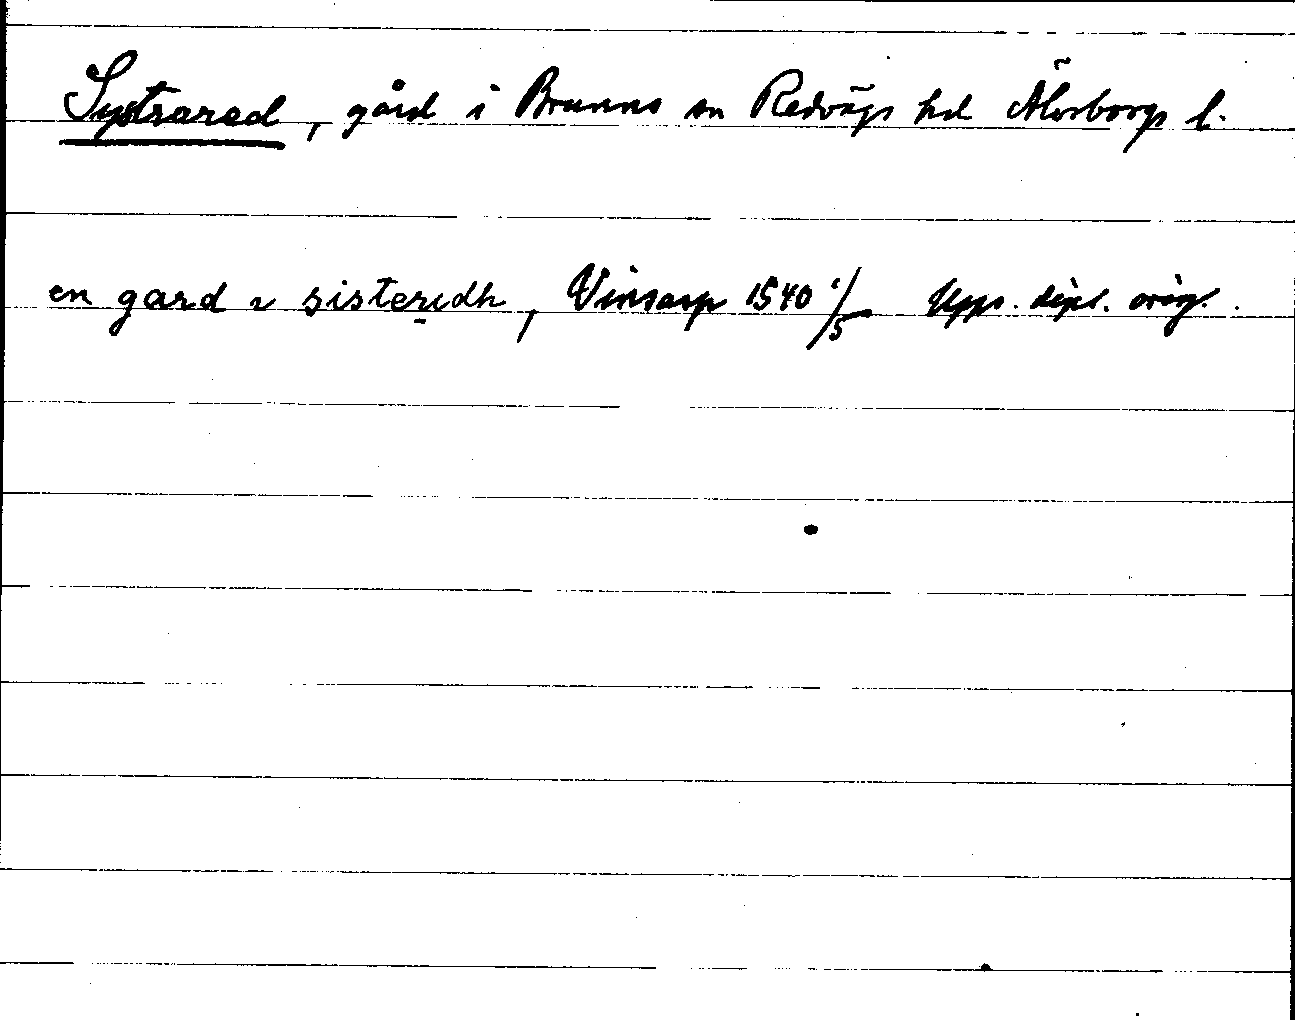 Systrared, gård i Brunns sn Redvägs hd Älvsborgs l.
en gard i sisteredh, Vinsarp 1540 1/5 Upps. dipl. orig.